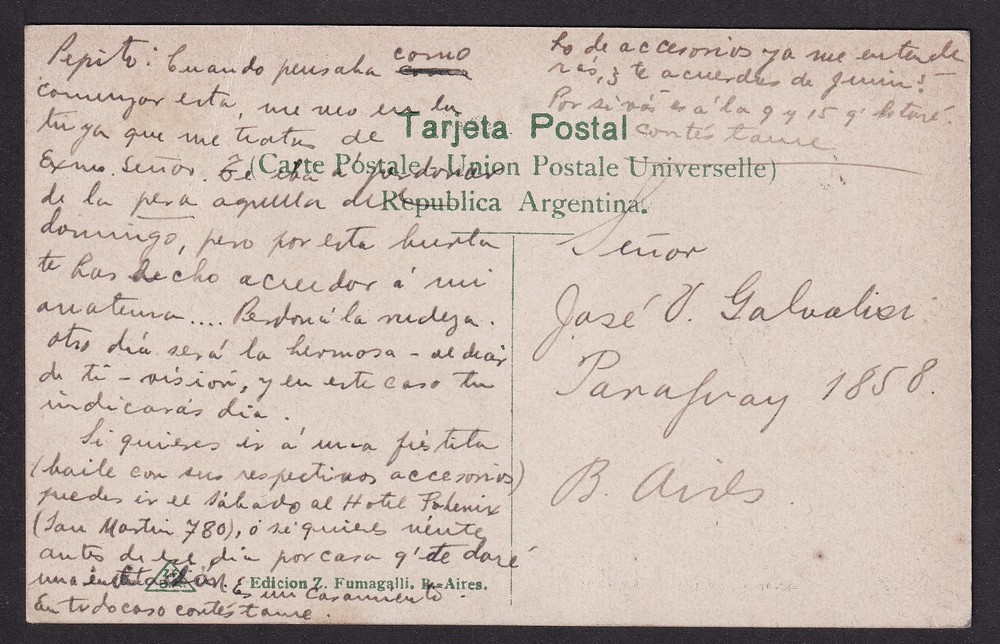 Pepito: Cuando pensaba como
comenzar esta, me veo en la
tuya que me tratas de
Exmo. Señor. Te iba á perdonar
de la pera aquella del
domingo, pero por esta burla
te has hecho acreedor á mi
anatema.... Perdoná la rudeza.
otro día será la hermosa - al decir
de ti - visión, y en este caso tu
indicarás día.
Si quieres ir á una fiestita
(baile con sus respectivos accesorios)
puedes ir el Sábado al Hotel Phoenix
(San Martin 780), ó si quieres vénte
antes de ese día por casa q' te daré
una Es un Casamiento.
En todo caso contéstame.
Lo de accesorios ya me entende
rás, ¿te acuerdas de Junin?
Por si vás es á la 9 y 15 q'
contéstame
Tarjeta Postal
(Carte Postale) Union Postale Universelle)
Republica Argentina.
Señor
José V. Galvalisi
Paraguay 1858.
B. Aires
Edicion Z. Fumagalli. B.-Aires.